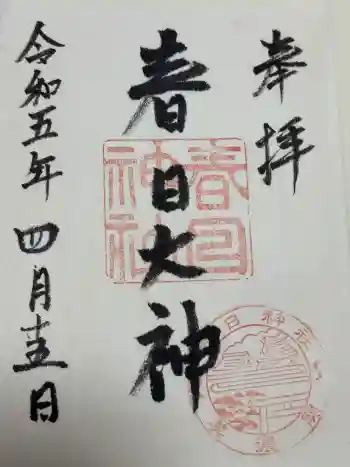 奉拝
春日大神
春日
神社
令和五年 四月十五日